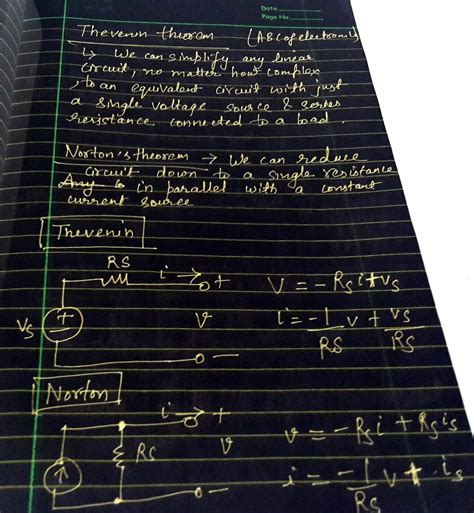 Date
Page No.
Thevenin thieorem (ABC of electronics)
↳ We can simplify any linear
circuit, no matter how complex
, to an equivalent circuit with just
a single voltage source & series
resistance connected to a load.
Norton's theorem → We can reduce
circuit down to a single resistance
Any in parallel with a constant
current source
Thevenin
RS i → +
V = -Rsi + vs
Vs + v
i = -1/RS v + vs/RS
-
Norton
i → +
v = -Rsi + Rsis
RS v
i = -1/RS v + is
-